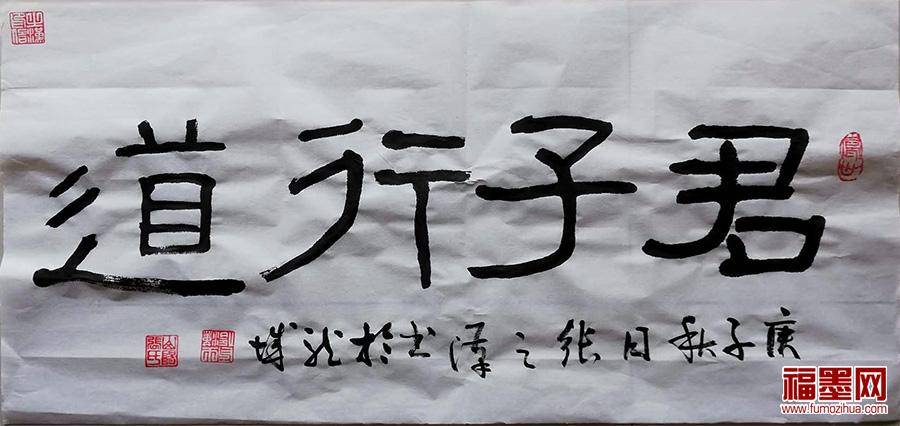 君子行道
庚子秋月张之漢书於龙城
福墨网
www.fumozihua.com